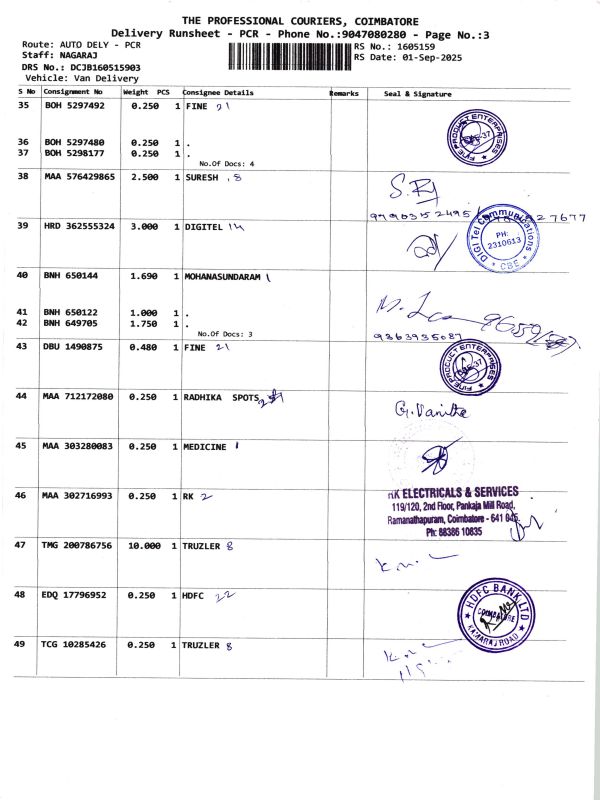 THE PROFESSIONAL COURIERS, COIMBATORE
Delivery Runsheet - PCR - Phone No.:9047080280 - Page No.:3
Route: AUTO DELY - PCR
RS No.: 1605159
Staff: NAGARAJ
RS Date: 01-Sep-2025
DRS No.: DCJB160515903
Vehicle: Van Delivery
S No Consignment No Weight PCS Consignee Details Remarks Seal & Signature
35 BOH 5297492 0.250 1 FINE 21
FINE PRODUCT ENTERPRISES
36 BOH 5297480 0.250 1 .
37 BOH 5298177 0.250 1 .
No.Of Docs: 4
38 MAA 576429865 2.500 1 SURESH 8
39 HRD 362555324 3.000 1 DIGITEL 14
DIGI Tel Communications
PH:
2310613
* CBE *
40 BNH 650144 1.690 1 MOHANASUNDARAM 1
41 BNH 650122 1.000 1 .
42 BNH 649705 1.750 1 .
No.Of Docs: 3
9363935087
43 DBU 1490875 0.480 1 FINE 21
FINE PRODUCT ENTERPRISES
44 MAA 712172080 0.250 1 RADHIKA SPOTS
G. Vanitha
45 MAA 303280083 0.250 1 MEDICINE 1
46 MAA 302716993 0.250 1 RK 2
RK ELECTRICALS & SERVICES
119/120, 2nd Floor, Pankaja Mill Road,
Ramanathapuram, Coimbatore - 641 045.
Ph: 88386 10835
47 TMG 200786756 10.000 1 TRUZLER 8
48 EDQ 17796952 0.250 1 HDFC 22
HDFC BANK LTD
COIMBATORE
KAMARAJ ROAD
49 TCG 10285426 0.250 1 TRUZLER 8